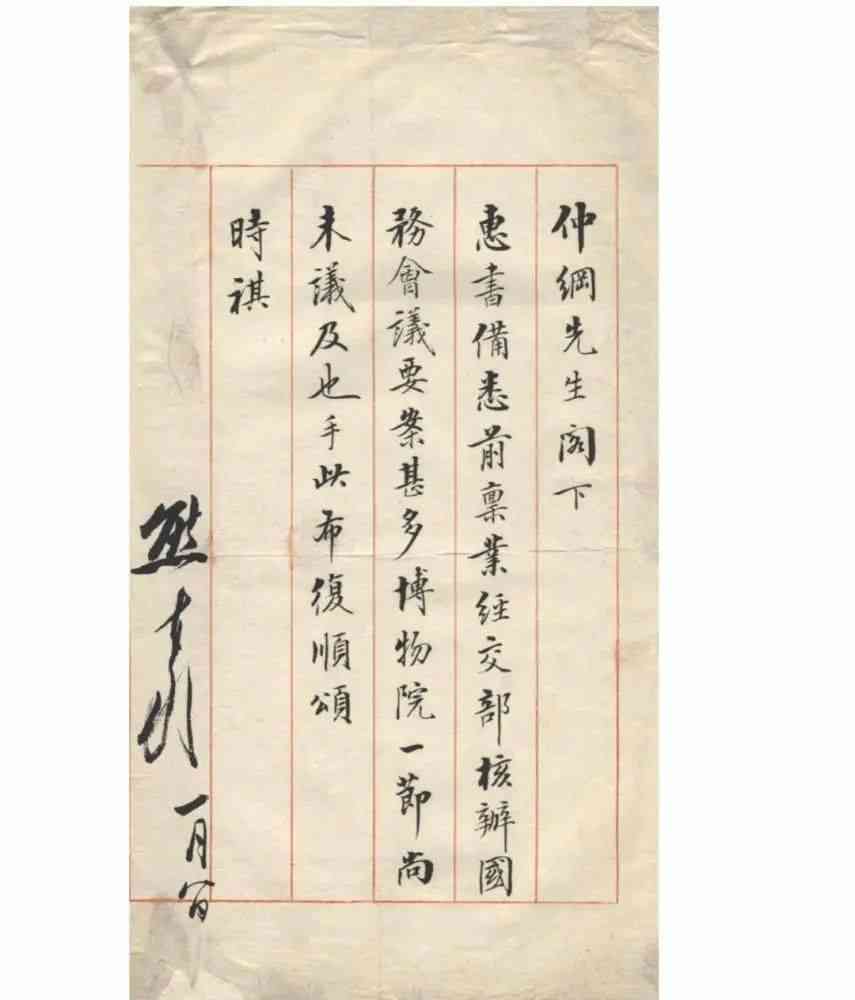 仲綱先生阁下
惠書備悉前稟業經交部核辦國
務會議要案甚多博物院一節尚
未議及也手此布復順頌
時祺
熊希齡 一月八日